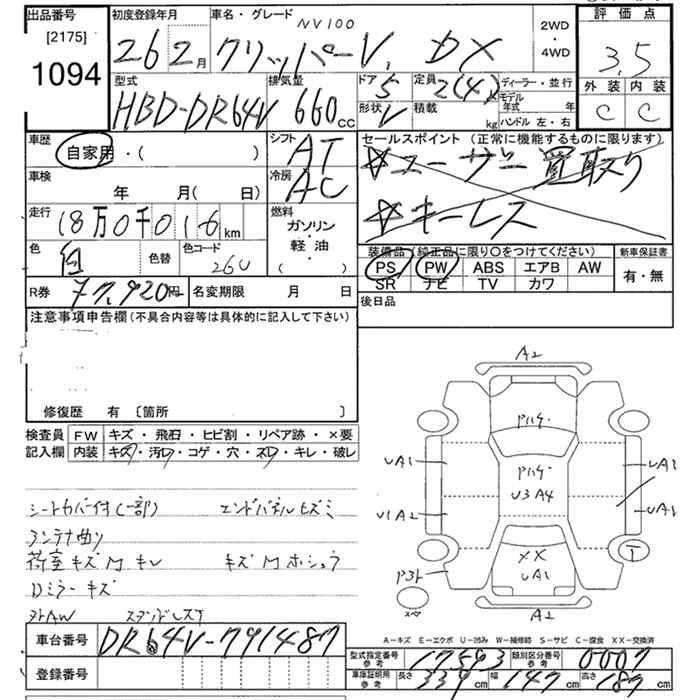 出品番号
[2175]
1094
初度登録年月
26 2月
車名・グレード
NV100
クリッパーV. DX
2WD
・
4WD
評価点
3.5
外装 内装
C C
型式
HBD-DR64V
排気量
660cc
ドア
5
形状
V
定員
2(4)人
積載
kg
ディーラー・並行
モデル年式 年
ハンドル 左・右
車歴
自家用・( )
シフト
AT
セールスポイント (正常に機能するものに限ります)
☆ユーザー買取り
☆キーレス
車検
年 月( 日)
冷房
AC
走行
18万0千016km
燃料
ガソリン
・
軽油
( )
色
白
色替
色コード
26U
装備品 (純正品に限り○をつけてください)
PS PW ABS エアB AW
SR ナビ TV カワ
新車保証書
有・無
R券 77,920円
名変期限 月 日
後日品
注意事項申告欄 (不具合内容等は具体的に記入して下さい)
修復歴 有 〔箇所 〕
検査員
記入欄
FW キズ・飛石・ヒビ割・リペア跡・×要
内装 キズ・汚レ・コゲ・穴・スレ・キレ・破レ
シートカバー付(一部) エンドパネルヒズミ
アンテナ曲り
荷室キズMキレ キズM ホシュウ
Dミラーキズ
A2
Pハゲ.
Pハゲ.
U3A4
UA1
UA1
U1A2
UA1
XX
UA1
T
スペア
A2
A-キズ E-エクボ U-凹み W-補修跡 S-サビ C-腐食 XX-交換済
車台番号 DR64V-791487
登録番号
型式指定番号
参考
17593
類別区分番号
参考
0007
車庫証明用
参考
長さ 339cm 幅 147cm 高さ 187cm